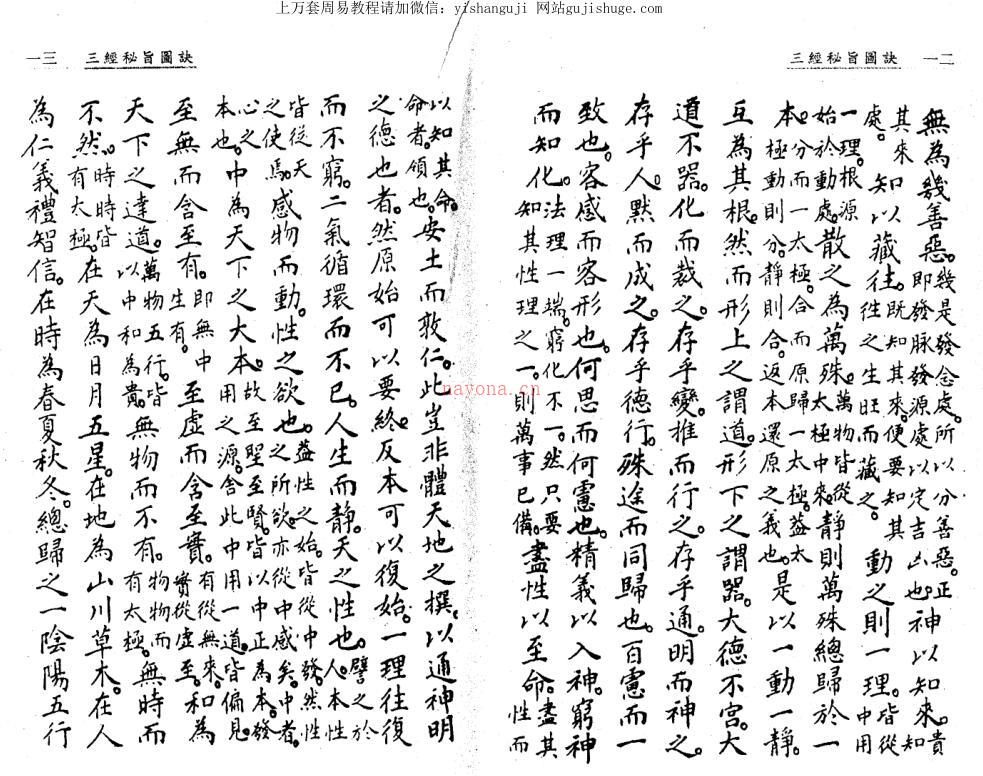 上万套周易教程请加微信：yishanguji 网站gujishuge.com
三經秘旨圖訣 一二
無為幾善惡。幾是發念處。所以分善惡。正即發脉發源處以定吉凶也。神以知來。貴
其來知以藏往。既知其來便要知其往之生旺而藏之。動之則一理。皆從
處。
一理。根源始於動處。散之為萬殊。萬物皆從太極中來。靜則萬殊總歸於一
本。分而一太極。合而原歸一太極。蓋太極動則分。靜則合。返本還原之義也。是以一動一靜。
互為其根。然而形上之謂道。形下之謂器。大德不官。大
道不器。化而裁之。存乎變。推而行之。存乎通。明而神之。
存乎人。默而成之。存乎德行。殊途而同歸也。百慮而一
致也。容感而容形也。何思而何慮也。精義以入神。窮神
而知化。法理一端。窮化不一。然只要知其性理之一。則萬事已備。盡性以至命。盡其性而
三經秘旨圖訣 一三
以知其命。命者。領也。安土而敦仁。此豈非體天地之撰。以通神明
之德也者。然原始可以要終。反本可以復始。一理往復
而不窮。二氣循環而不已。人生而靜。天之性也。人本性
皆從天之使焉。感物而動。性之欲也。蓋性之始。皆從中發。然性之所欲。亦從中感矣。中者。
心之本也。中為天下之大本。故至聖至賢。皆以中正為本。發用之源。舍此中用一道。皆偏見。
至無而含至有。即無中生有。至虛而含至實。有從無來。實從虛至。和為
天下之達道。萬物五行。皆以中和為貴。無物而不有。物物而有太極。無時而
不然。時時皆有太極。在天為日月五星。在地為山川草木。在人
為仁義禮智信。在時為春夏秋冬。總歸之一陰陽五行
nayona.cn